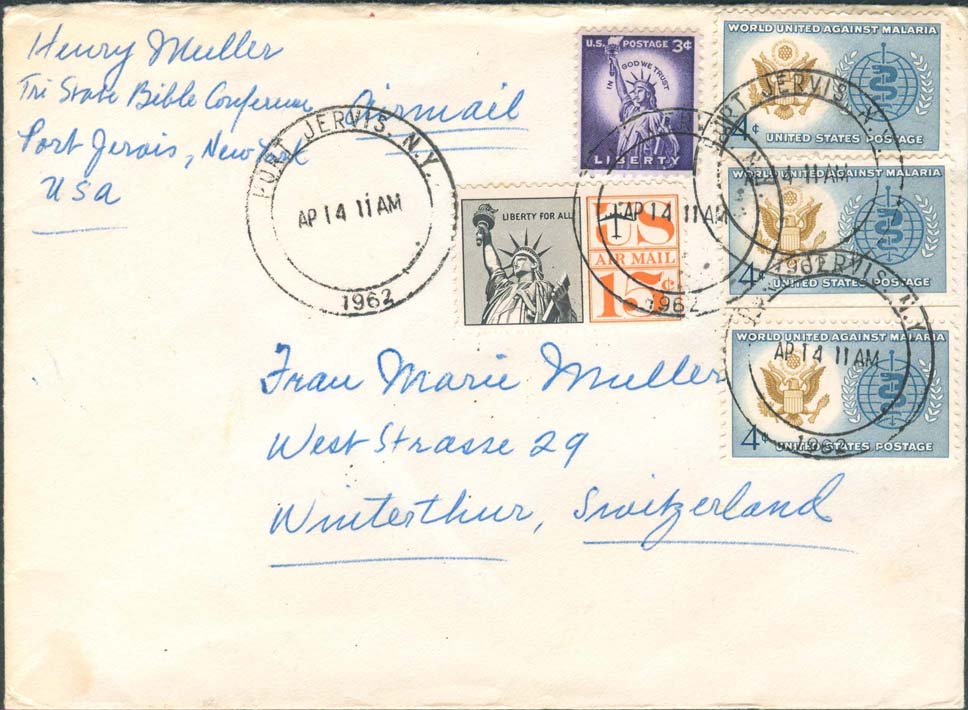 Henry Muller
Tri State Bible Conference
Port Jervis, New York
USA
Airmail
PORT JERVIS N.Y.
AP 14 11 AM
1962
U.S. POSTAGE 3¢
IN GOD WE TRUST
LIBERTY
LIBERTY FOR ALL
US
AIR MAIL
15¢
AP 14 11 AM
1962
WORLD UNITED AGAINST MALARIA
4¢
UNITED STATES POSTAGE
PORT JERVIS, N.Y.
14 11 AM
1962
WORLD UNITED AGAINST MALARIA
4¢
UNITED STATES POSTAGE
JERVIS. N.Y.
WORLD UNITED AGAINST MALARIA
AP 14 11 AM
4¢
UNITED STATES POSTAGE
1962
Frau Marie Muller
West Strasse 29
Winterthur, Switzerland